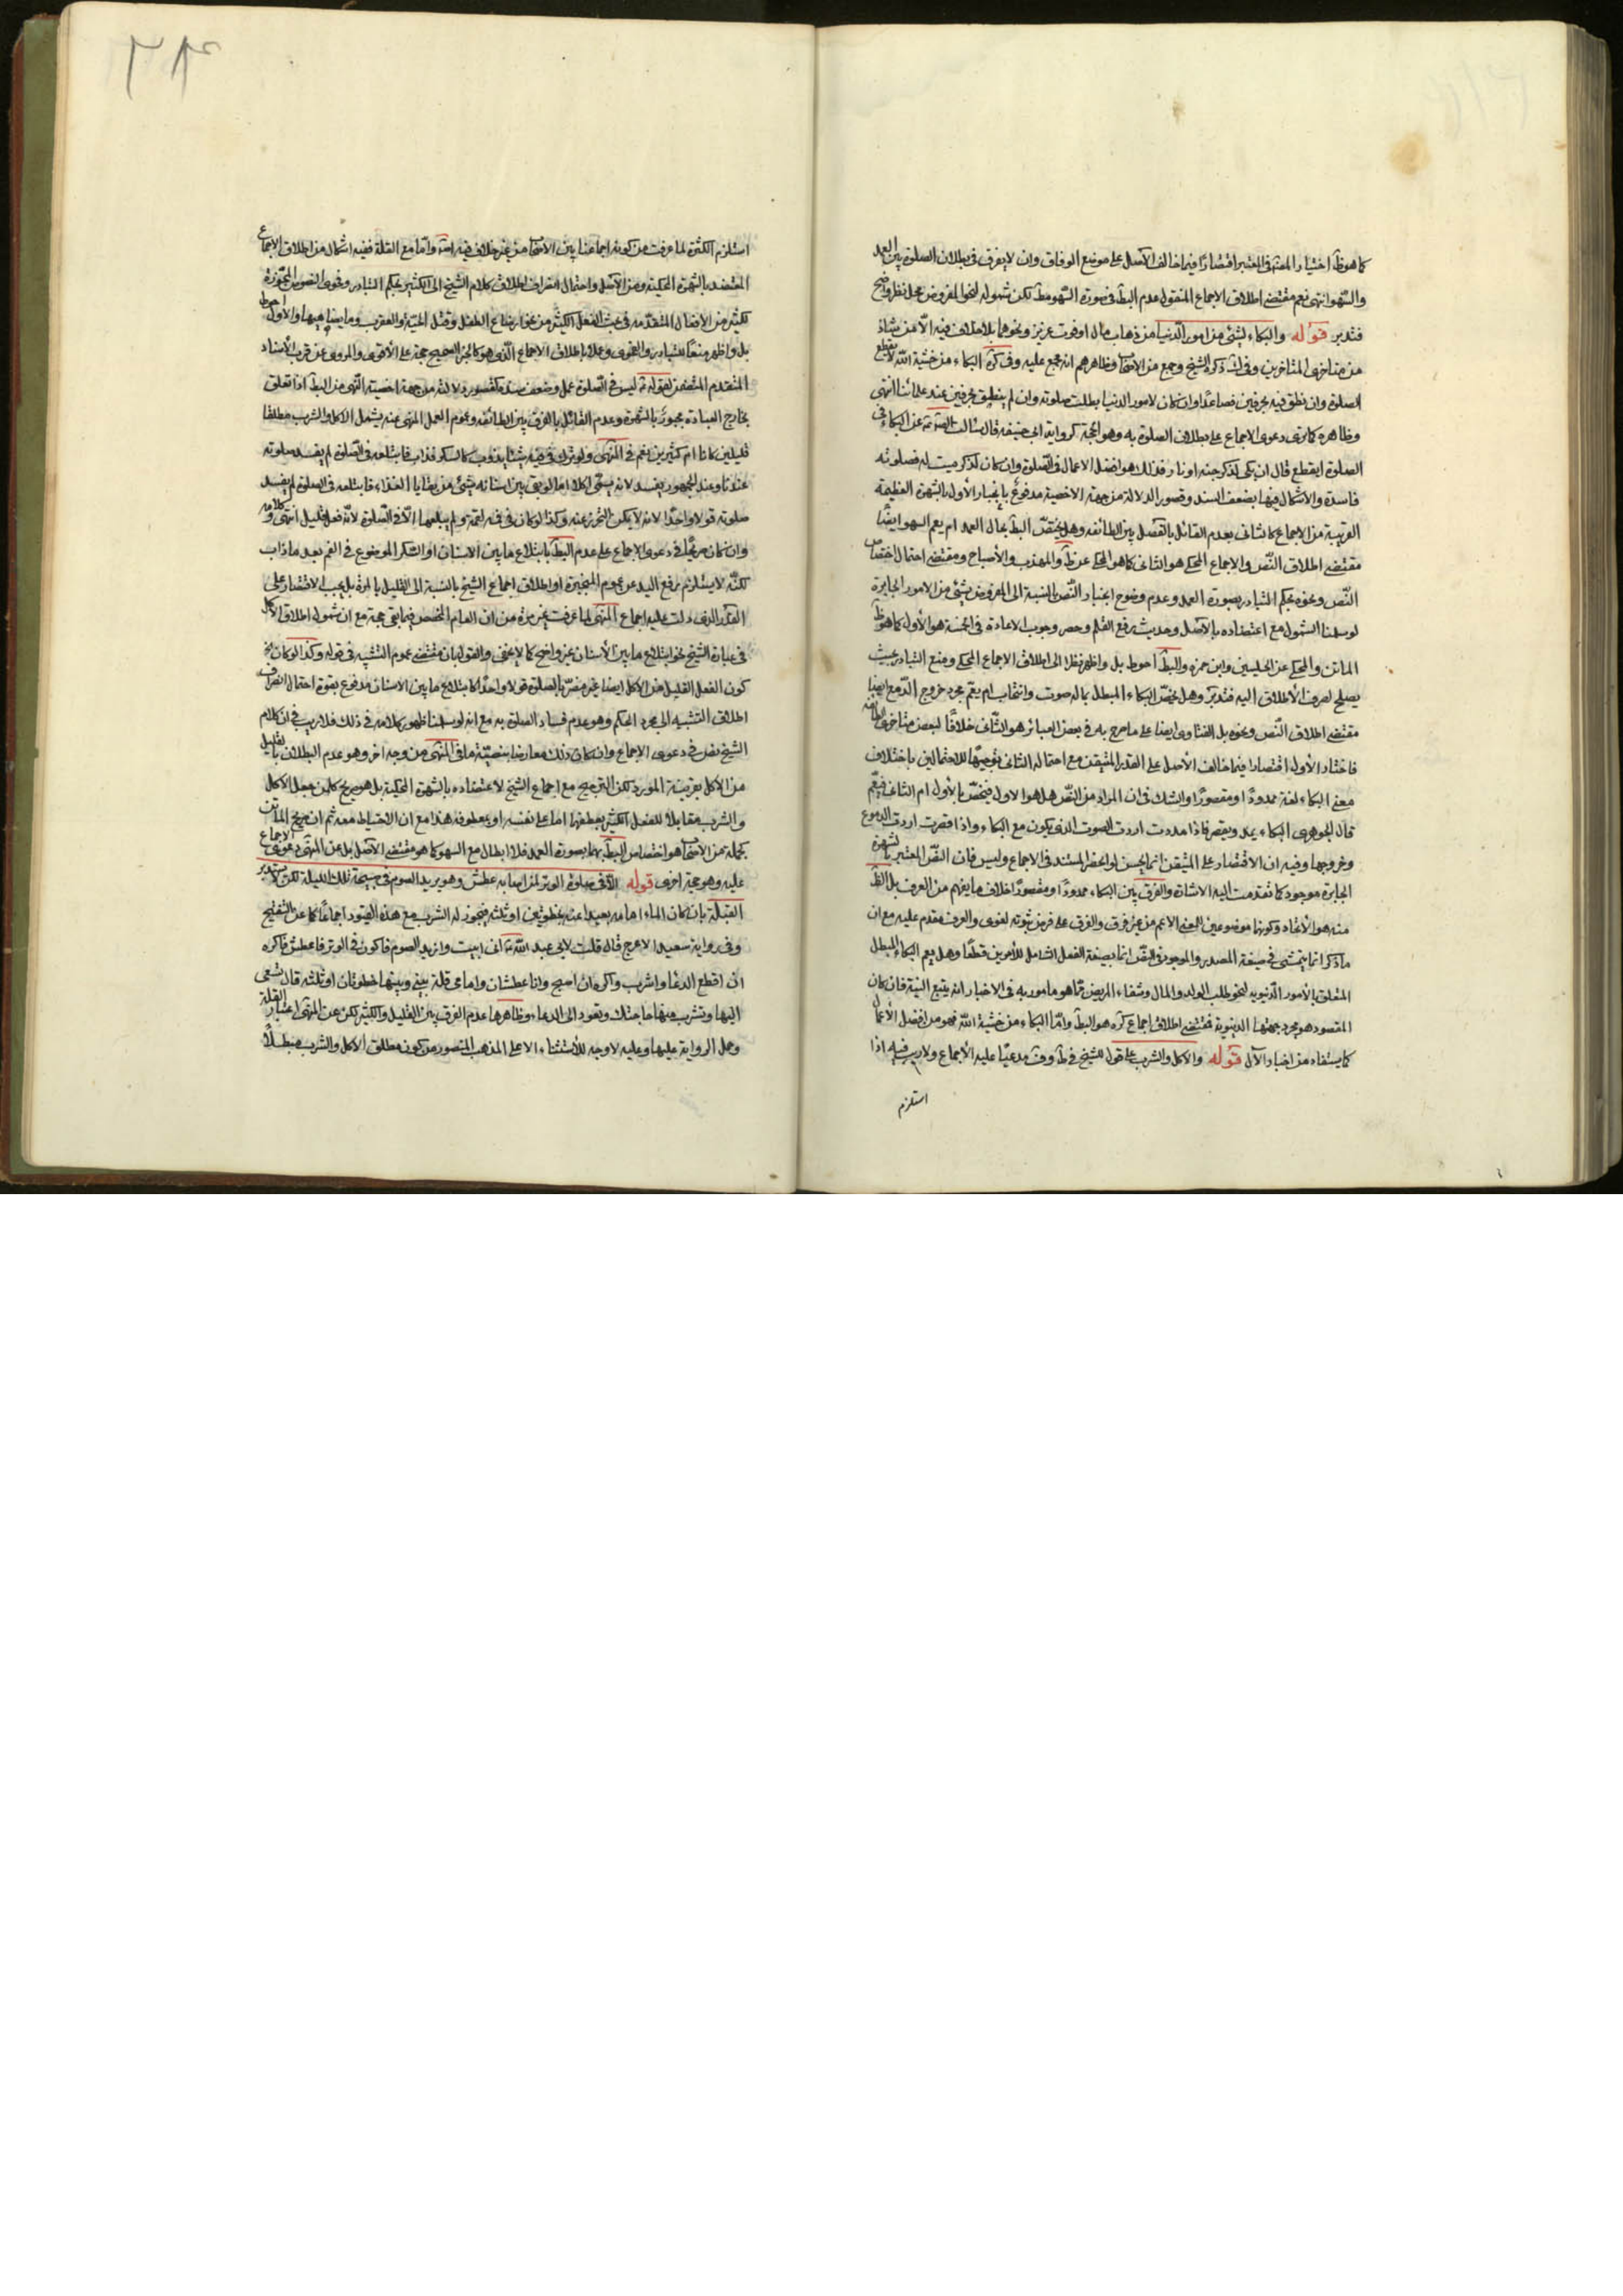 كما هو ظ اختيار المعتبر اقتصارًا فيما خالف الاصل على موضع الوفاق وان لا يفرق في بطلان الصلوة بين العمد
والسهو انتهى نعم مقتضى اطلاق الاجماع المنقول عدم البط في صورة السهو مط لكن شموله لنحو المفروض محل نظر واضح
فتدبر قوله والبكاء لشئ من امور الدنيا من ذهاب مال او فوت عزيز ونحوهما بلا خلاف فيه الا من شاذ
من متاخرى المتاخرين وفى ذكره الشيخ وجمع من الاصحاب وظاهرهم انه مجمع عليه وفى كره البكاء من خشية الله لا يقطع
الصلوة وان نطق فيه بحرفين فصاعدًا وان كان لامور الدنيا بطلت صلوته وان لم ينطق بحرفين عند علمائنا انتهى
وظاهره كما ترى دعوى الاجماع على بطلان الصلوة به وهو الحجة كرواية ابى حنيفه قال سالت الص عن البكاء في
الصلوة ايقطع قال ان بكى لذكر جنه او نار فذلك هو افضل الاعمال في الصلوة وان كان لذكر ميت له فصلوته
فاسدة والاشكال فيها بضعف السند وقصور الدلالة من جهة الاخصية مدفوع بانجبار الاول بالشهرة العظيمة
القريبة من الاجماع كالثانى بعدم القائل بالفصل بين الطائفه وهل يختص البط بحال العمد ام يعم السهو ايضًا
مقتضى اطلاق النص والاجماع المحكى هو الثانى كما هو المحكى عن ظ والمهذب والاصباح ومقتضى احتمال اختصاص
النص ونحوه بحكم التبادر بصورة العمد وعدم وضوح انجبار النص بالنسبة الى المفروض بشئ من الامور الجابرة
لو سلمنا الشمول مع اعتضاده بالاصل وحديث رفع القلم وحصر وجوب الاعادة في الخمسة هو الاول كما هو ظ
الماتن والمحكى عن الحلبيين وابن حمزه والبط احوط بل واظهر نظرا الى اطلاق الاجماع المحكى ومنع التبادر بحيث
يصلح لصرف الاطلاق اليه فتدبر وهل يختص البكاء المبطل بما له صوت وانتحاب ام يعم مجرد خروج الدمع ايضا
مقتضى اطلاق النص ونحوه بل الفتاوى ايضا على ما صرح به في بعض العبائر هو الثانى خلافًا لبعض متاخرى الطائفه
فاختار الاول اقتصارا فيما خالف الاصل على القدر المتيقن مع احتماله الثانى توجيهًا للاحتمالين باختلاف
معنى البكاء لغة ممدودًا او مقصورًا والشك في ان المراد من النص هل هو الاول فيختص بالاول ام الثانى فيعم
قال الجوهرى البكاء يمد ويقصر فاذا مددت اردت الصوت الذى يكون مع البكاء واذا قصرت اردت الدموع
وخروجها وفيه ان الاقتصار على المتيقن انما يحسن لو انحصر المستند في الاجماع وليس فان النص المعتبر بالشهرة
الجابرة موجود كما تقدمت اليه الاشارة والفرق بين البكاء ممدودًا ومقصورًا خلاف ما يفهم من العرف بل الظ
منه هو الاتحاد وكونهما موضوعين للمعنى الاعم من غير فرق والفرق على فرض ثبوته لغوى والعرف مقدم عليه مع ان
ما ذكر انما يتمشى في صيغة المصدر والموجود في النص انما بصيغة الفعل الشامل للامرين قطعًا وهل يعم البكاء المبطل
المتعلق بالامور الدنيويه لنحو طلب الولد والمال وشفاء المريض مما هو مامور به في الاخبار انه يتبع النية فان كان
المقصود هو مجرد جهتها الدنيوية فمقتضى اطلاق اجماع كره هو البط واما البكاء من خشية الله فهو من افضل الاعمال
كما يستفاد من اخبار الآل قوله والاكل والشرب على قول للشيخ في ط وف مدعيًا عليه الاجماع ولا ريب فيه اذا
استلزم
استلزم الكثرة لما عرفت من كونه اجماعنا بين الاصحاب من غير خلاف فيه اصلا واما مع القلة ففيه اشكال من اطلاق الاجماع
المعتضد بالشهرة المحكية ومن الاصل واحتمال انصراف اطلاق كلام الشيخ الى الكثير بحكم التبادر وفحوى النصوص المجوزة
لكثير من الافعال المتقدمه في بحث الفعل الكثير من نحو ارضاع الطفل وقتل الحية والعقرب وما يضاهيها والاول احوط
بل واظهر منعًا للتبادر والفحوى وعملا باطلاق الاجماع الذى هو كالخبر الصحيح حجة على الاقوى والمروى عن قرب الاسناد
المتقدم المتضمن لقوله ليس في الصلوة عمل وضعف سنده كقصور دلالته من جهة اخصية النهى من البط اذا تعلق
بخارج العبادة مجبور بالشهرة وعدم القائل بالفرق بين الطائفه وعموم العمل المنهى عنه يشمل الاكل والشرب مطلقا
قليلين كانا ام كثيرين نعم في المنتهى ولو ترك في فيه شيئا يذوب كالسكر فذاب فابتلعه في الصلوة لم يفسد صلوته
عندنا وعند الجمهور يفسد لانه يسمى اكلا اما لو بقى بين اسنانه شئ من بقايا الغذاء فابتلعه في الصلوة لم يفسد
صلوته قولا واحدًا لانه لا يمكن التحرز عنه وكذا لو كان في فيه لقمة ولم يبلعها الا في الصلوة لانه فعل قليل انتهى وكلامه
وان كان صريحًا في دعوى الاجماع على عدم البط بابتلاع ما بين الاسنان او السكر الموضوع في الفم بعد ما ذاب
لكنه لا يستلزم رفع اليد عن عموم المنجبرة او اطلاق اجماع الشيخ بالنسبة الى القليل بالمرة بل يجب الاقتصار على
القدر الذى دلت عليه اجماع المنتهى لما عرفت غير مرة من ان العام المخصص فيما بقى حجة مع ان شمول اطلاق الاكل
في عبارة الشيخ نحو ابتلاع ما بين الاسنان غير واضح كما لا يخفى والقول بان مقتضى عموم التشبيه في قوله وكذا لو كان
كون الفعل القليل هذا الاكل ايضا غير مضر بالصلوة قولا واحدًا كابتلاع ما بين الاسنان مدفوع بقوة احتمال انصراف
اطلاق التشبيه الى مجرد الحكم وهو عدم فساد الصلوة به مع انه لو سلمنا ظهور كلامه في ذلك فلا ريب في ان كلام
الشيخ نص في دعوى الاجماع وان كان ذلك معارضا بنصيته ما في المنتهى من وجه اخر وهو عدم البطلان بالقليل
من الاكل بقرينة المورد لكن الترجيح مع اجماع الشيخ لاعتضاده بالشهرة المحكية بل هو صريح كل من جعل الاكل
والشرب مقابلا للفعل الكثير بعطفهما اما على نفسه او بمعطوفه هذا مع ان الاحتياط معه ثم ان صريح الماتن
كجملة من الاصحاب هو اختصاص البط بهما بصورة العمد فلا ابطال مع السهو كما هو مقتضى الاصل بل عن المنتهى دعوى الاجماع
عليه وهو حجة اخرى قوله الا في صلوة الوتر لمن اصابه عطش وهو يريد الصوم في صبيحة تلك الليلة لكن لا يستدبر
القبلة بان كان الماء امامه بعيدا عنه بخطوتين او ثلثه فيجوز له الشرب مع هذه القيود اجماعًا كما عن التنقيح
وفى رواية سعيد الاعرج قال قلت لابى عبد الله انى ابيت واريد الصوم فاكون في الوتر فاعطش فاكره
ان اقطع الدعا واشرب واكره ان اصبح وانا عطشان وامامى قلة بينى وبينها خطوتان او ثلثه قال تسعى
اليها وتشرب منها حاجتك وتعود الى الدعاء وظاهرها عدم الفرق بين القليل والكثير لكن عن المنتهى اعتبار القلة
وحمل الرواية عليها وعليه لا وجه للاستثناء الا على المذهب المنصور من كون مطلق الاكل والشرب مبطلًا